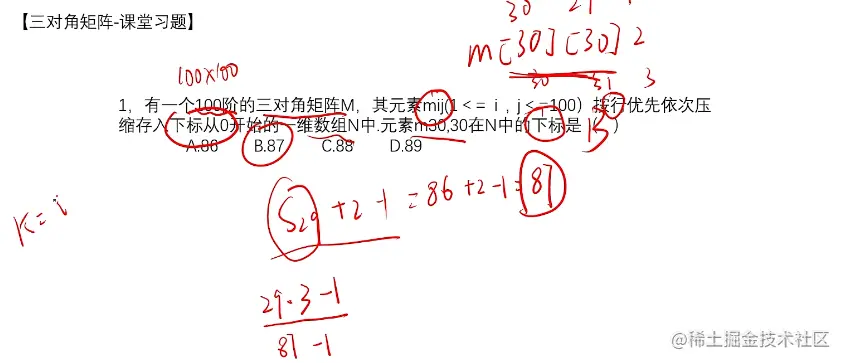 【三对角矩阵-课堂习题】
30
m[30][30] 2
30 31 3
100×100
1，有一个100阶的三对角矩阵M，其元素mij(1<= i , j <=100）按行优先依次压
缩存入下标从0开始的一维数组N中.元素m30,30在N中的下标是（ ）
B
A.86 B.87 C.88 D.89
S29 +2 -1 = 86 +2 -1 = 87
K= i
29·3 -1
87 -1
@稀土掘金技术社区